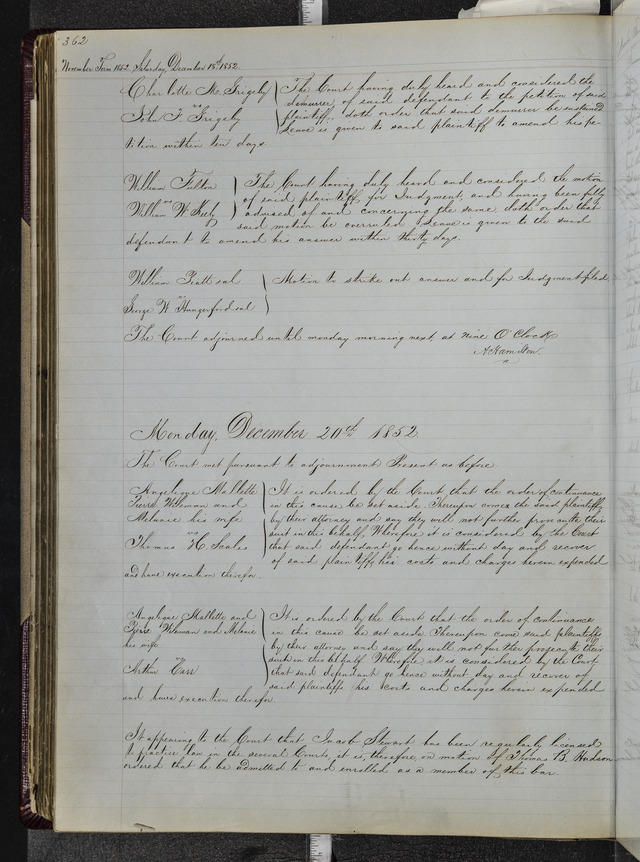 362
November Term 1852. Saturday, December 18th 1852.
Charlotte M. Grigsby } The Court having duly heard and considered the
demurrer of said defendant to the petition of said
vs
John F. Grigsby plaintiff, doth order that said demurrer be sustained
Leave is given to said plaintiff to amend his pe-
tition within ten days
William Felton } The Court having duly heard and considered the motion
of said plaintiff, for Judgment, and having been fully
vs
William W. Keely advised of and concerning the same doth order that
said motion be overruled & leave is given to the said
defendant to amend his answer within thirty days.
William Pratt et al } Motion to strike out answer and for Judgment filed
vs
George W. Hungerford et al
The Court adjourned until monday morning next, at nine O'Clock
A Hamilton
Monday, December 20th 1852
The Court met pursuant to adjournment Present as before
Angelique Mallette } It is ordered by the Court that the order of continuance
Pierre Wileman and in this cause be set aside Thereupon comes the said plaintiffs
Melanie his wife by their attorney and say they will not further prosecute their
suit in this behalf, Wherefore it is considered by the Court
vs
Thomas H. Scales that said defendant go hence without day and recover
of said plaintiffs his costs and charges herein expended
and have execution therefor.
Angelique Mallette and } It is ordered by the Court that the order of continuance
Pierre Wileman and Melanie in this cause be set aside Thereupon come said plaintiffs
his wife by their attorney and say they will not further prosecute their
suit in this behalf Wherefore it is considered by the Court
vs
Arthur Carr that said defendant go hence without day and recover of
said plaintiffs his Costs and charges herein expended
and have execution therefor.
It appearing to the Court that Jacob Stewart has been regularly licensed
to practice law in the several Courts, it is, therefore, on motion of Thomas B. Hudson
ordered that he be admitted to and enrolled as a member of this bar.